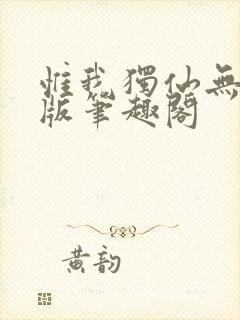 惟我獨仙無
版筆趣閣
黃韵